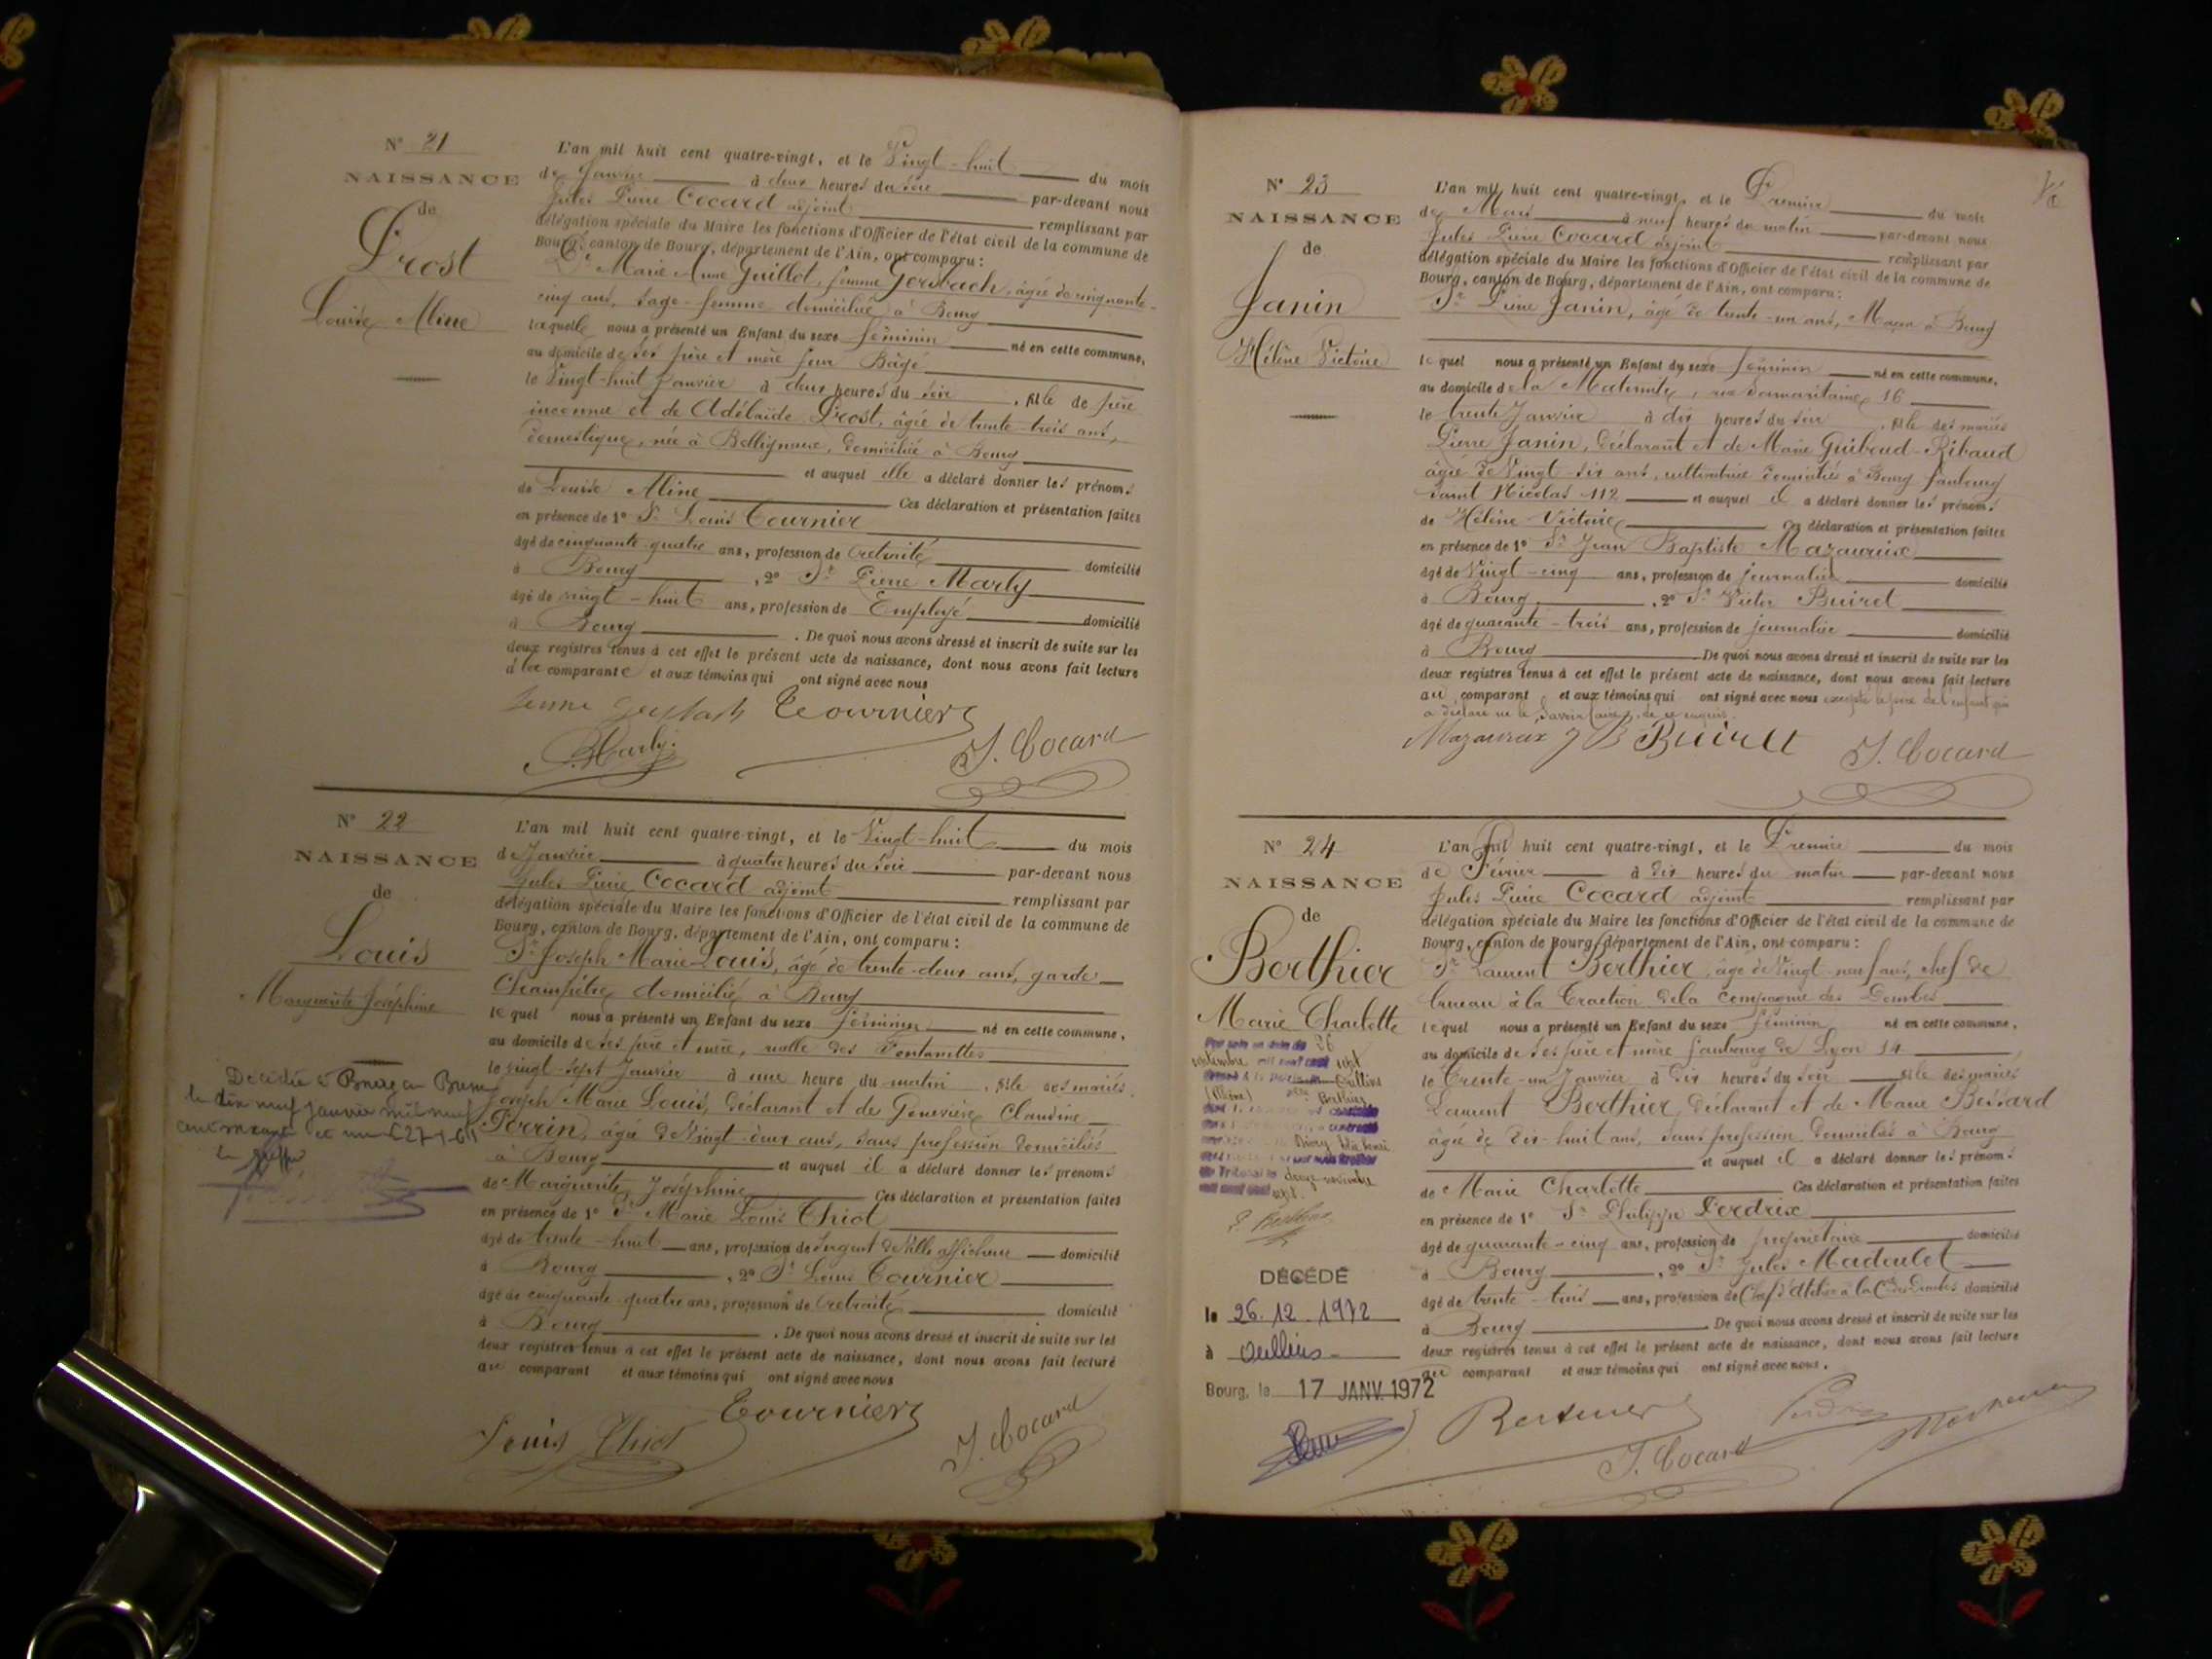 N° 21
NAISSANCE
de
Prost
Louise Aline
L'an mil huit cent quatre-vingt, et le Vingt-huit du mois
de Janvier à deux heures du soir par-devant nous
Jules Pierre Cocard adjoint remplissant par
délégation spéciale du Maire les fonctions d'Officier de l'état civil de la commune de
Bourg, canton de Bourg, département de l'Ain, ont comparu :
De Marie Anne Guillot, femme Gersbach, âgée de cinquante-
cinq ans, sage-femme domiciliée à Bourg
laquelle nous a présenté un Enfant du sexe féminin né en cette commune,
au domicile de ses père et mère four Bâgé
le Vingt-huit Janvier à deux heures du soir, fille de père
inconnu et de Adélaïde Prost, âgée de trente-trois ans,
domestique, née à Bellignaux, domiciliée à Bourg
et auquel elle a déclaré donner les prénoms
de Louise Aline Ces déclaration et présentation faites
en présence de 1° Sr Louis Tournier
âgé de cinquante-quatre ans, profession de retraité domicilié
à Bourg, 2° Sr Pierre Marly
âgé de vingt-huit ans, profession de Employé domicilié
à Bourg. De quoi nous avons dressé et inscrit de suite sur les
deux registres tenus à cet effet le présent acte de naissance, dont nous avons fait lecture
à la comparante et aux témoins qui ont signé avec nous
Tournier
P. Marly
J. Cocard
N° 22
NAISSANCE
de
Louis
Marguerite Joséphine
Décédée à Bourg en Bresse
le dix neuf janvier mil neuf
cent soixante et un
L'an mil huit cent quatre-vingt, et le Vingt-huit du mois
de Janvier à quatre heures du soir par-devant nous
Jules Pierre Cocard adjoint remplissant par
délégation spéciale du Maire les fonctions d'Officier de l'état civil de la commune de
Bourg, canton de Bourg, département de l'Ain, ont comparu :
Sr Joseph Marie Louis, âgé de trente-deux ans, garde
Champêtre domicilié à Bourg
lequel nous a présenté un Enfant du sexe féminin né en cette commune,
au domicile de ses père et mère, ruelle des Fontanettes
le vingt-sept Janvier à une heure du matin, fille des mariés
Joseph Marie Louis, déclarant et de Geneviève Claudine
Perrin, âgée de Vingt-deux ans, sans profession domiciliés
à Bourg et auquel il a déclaré donner les prénoms
de Marguerite Joséphine Ces déclaration et présentation faites
en présence de 1° Sr Marie Louis Thiot
âgé de trente-huit ans, profession de Sergent de Ville afficheur domicilié
à Bourg, 2° Sr Louis Tournier
âgé de cinquante-quatre ans, profession de retraité domicilié
à Bourg. De quoi nous avons dressé et inscrit de suite sur les
deux registres tenus à cet effet le présent acte de naissance, dont nous avons fait lecture
au comparant et aux témoins qui ont signé avec nous
Louis Thiot Tournier J. Cocard
N° 23
NAISSANCE
de
Janin
Hélène Victoire
L'an mil huit cent quatre-vingt, et le Premier du mois
de à neuf heures du matin par-devant nous
Jules Pierre Cocard adjoint remplissant par
délégation spéciale du Maire les fonctions d'Officier de l'état civil de la commune de
Bourg, canton de Bourg, département de l'Ain, ont comparu :
Sr Pierre Janin, âgé de trente-un ans, Maçon à Bourg
lequel nous a présenté un Enfant du sexe féminin né en cette commune,
au domicile de la Maternité, rue Samaritaine 16
le trente Janvier à dix heures du soir, fille des mariés
Pierre Janin, déclarant et de Marie Guiboud-Ribaud
âgée de Vingt-six ans, cultivatrice domiciliés à Bourg faubourg
Saint Nicolas 112 et auquel il a déclaré donner les prénoms
de Hélène Victoire Ces déclaration et présentation faites
en présence de 1° Sr Jean Baptiste Mazauraix
âgé de Vingt-cinq ans, profession de journalier domicilié
à Bourg, 2° Sr Victor Buiret
âgé de quarante-trois ans, profession de journalier domicilié
à Bourg De quoi nous avons dressé et inscrit de suite sur les
deux registres tenus à cet effet le présent acte de naissance, dont nous avons fait lecture
au comparant et aux témoins qui ont signé avec nous excepté le père de l'enfant qui
a déclaré ne le savoir faire, de ce enquis.
J B Buiret J. Cocard
N° 24
NAISSANCE
de
Berthier
Marie Charlotte
26
septembre mil neuf cent sept
Oullins
(Rhône)
Berthier
douze novembre
mil neuf cent sept.
DÉCÉDÉ
le 26.12.1972
à Oullins
Bourg, le 17 JANV. 1972
L'an mil huit cent quatre-vingt, et le Premier du mois
de Février à dix heures du matin par-devant nous
Jules Pierre Cocard adjoint remplissant par
délégation spéciale du Maire les fonctions d'Officier de l'état civil de la commune de
Bourg, canton de Bourg, département de l'Ain, ont comparu :
Sr Laurent Berthier, âgé de Vingt-neuf ans, chef de
bureau à la Traction de la Compagnie des Dombes
lequel nous a présenté un Enfant du sexe féminin né en cette commune,
au domicile de ses père et mère faubourg de Lyon 14
le Trente-un Janvier à dix heures du soir fille des mariés
Laurent Berthier, déclarant et de Marie Bessard
âgée de dix-huit ans, sans profession domiciliés à Bourg
et auquel il a déclaré donner les prénoms
de Marie Charlotte Ces déclaration et présentation faites
en présence de 1° Sr Philippe Perdrix
âgé de quarante-cinq ans, profession de propriétaire domicilié
à Bourg, 2° Sr Jules Madoulet
âgé de trente-trois ans, profession de Chef d'atelier à la Cie des Dombes domicilié
à Bourg De quoi nous avons dressé et inscrit de suite sur les
deux registres tenus à cet effet le présent acte de naissance, dont nous avons fait lecture
au comparant et aux témoins qui ont signé avec nous.
J. Cocard